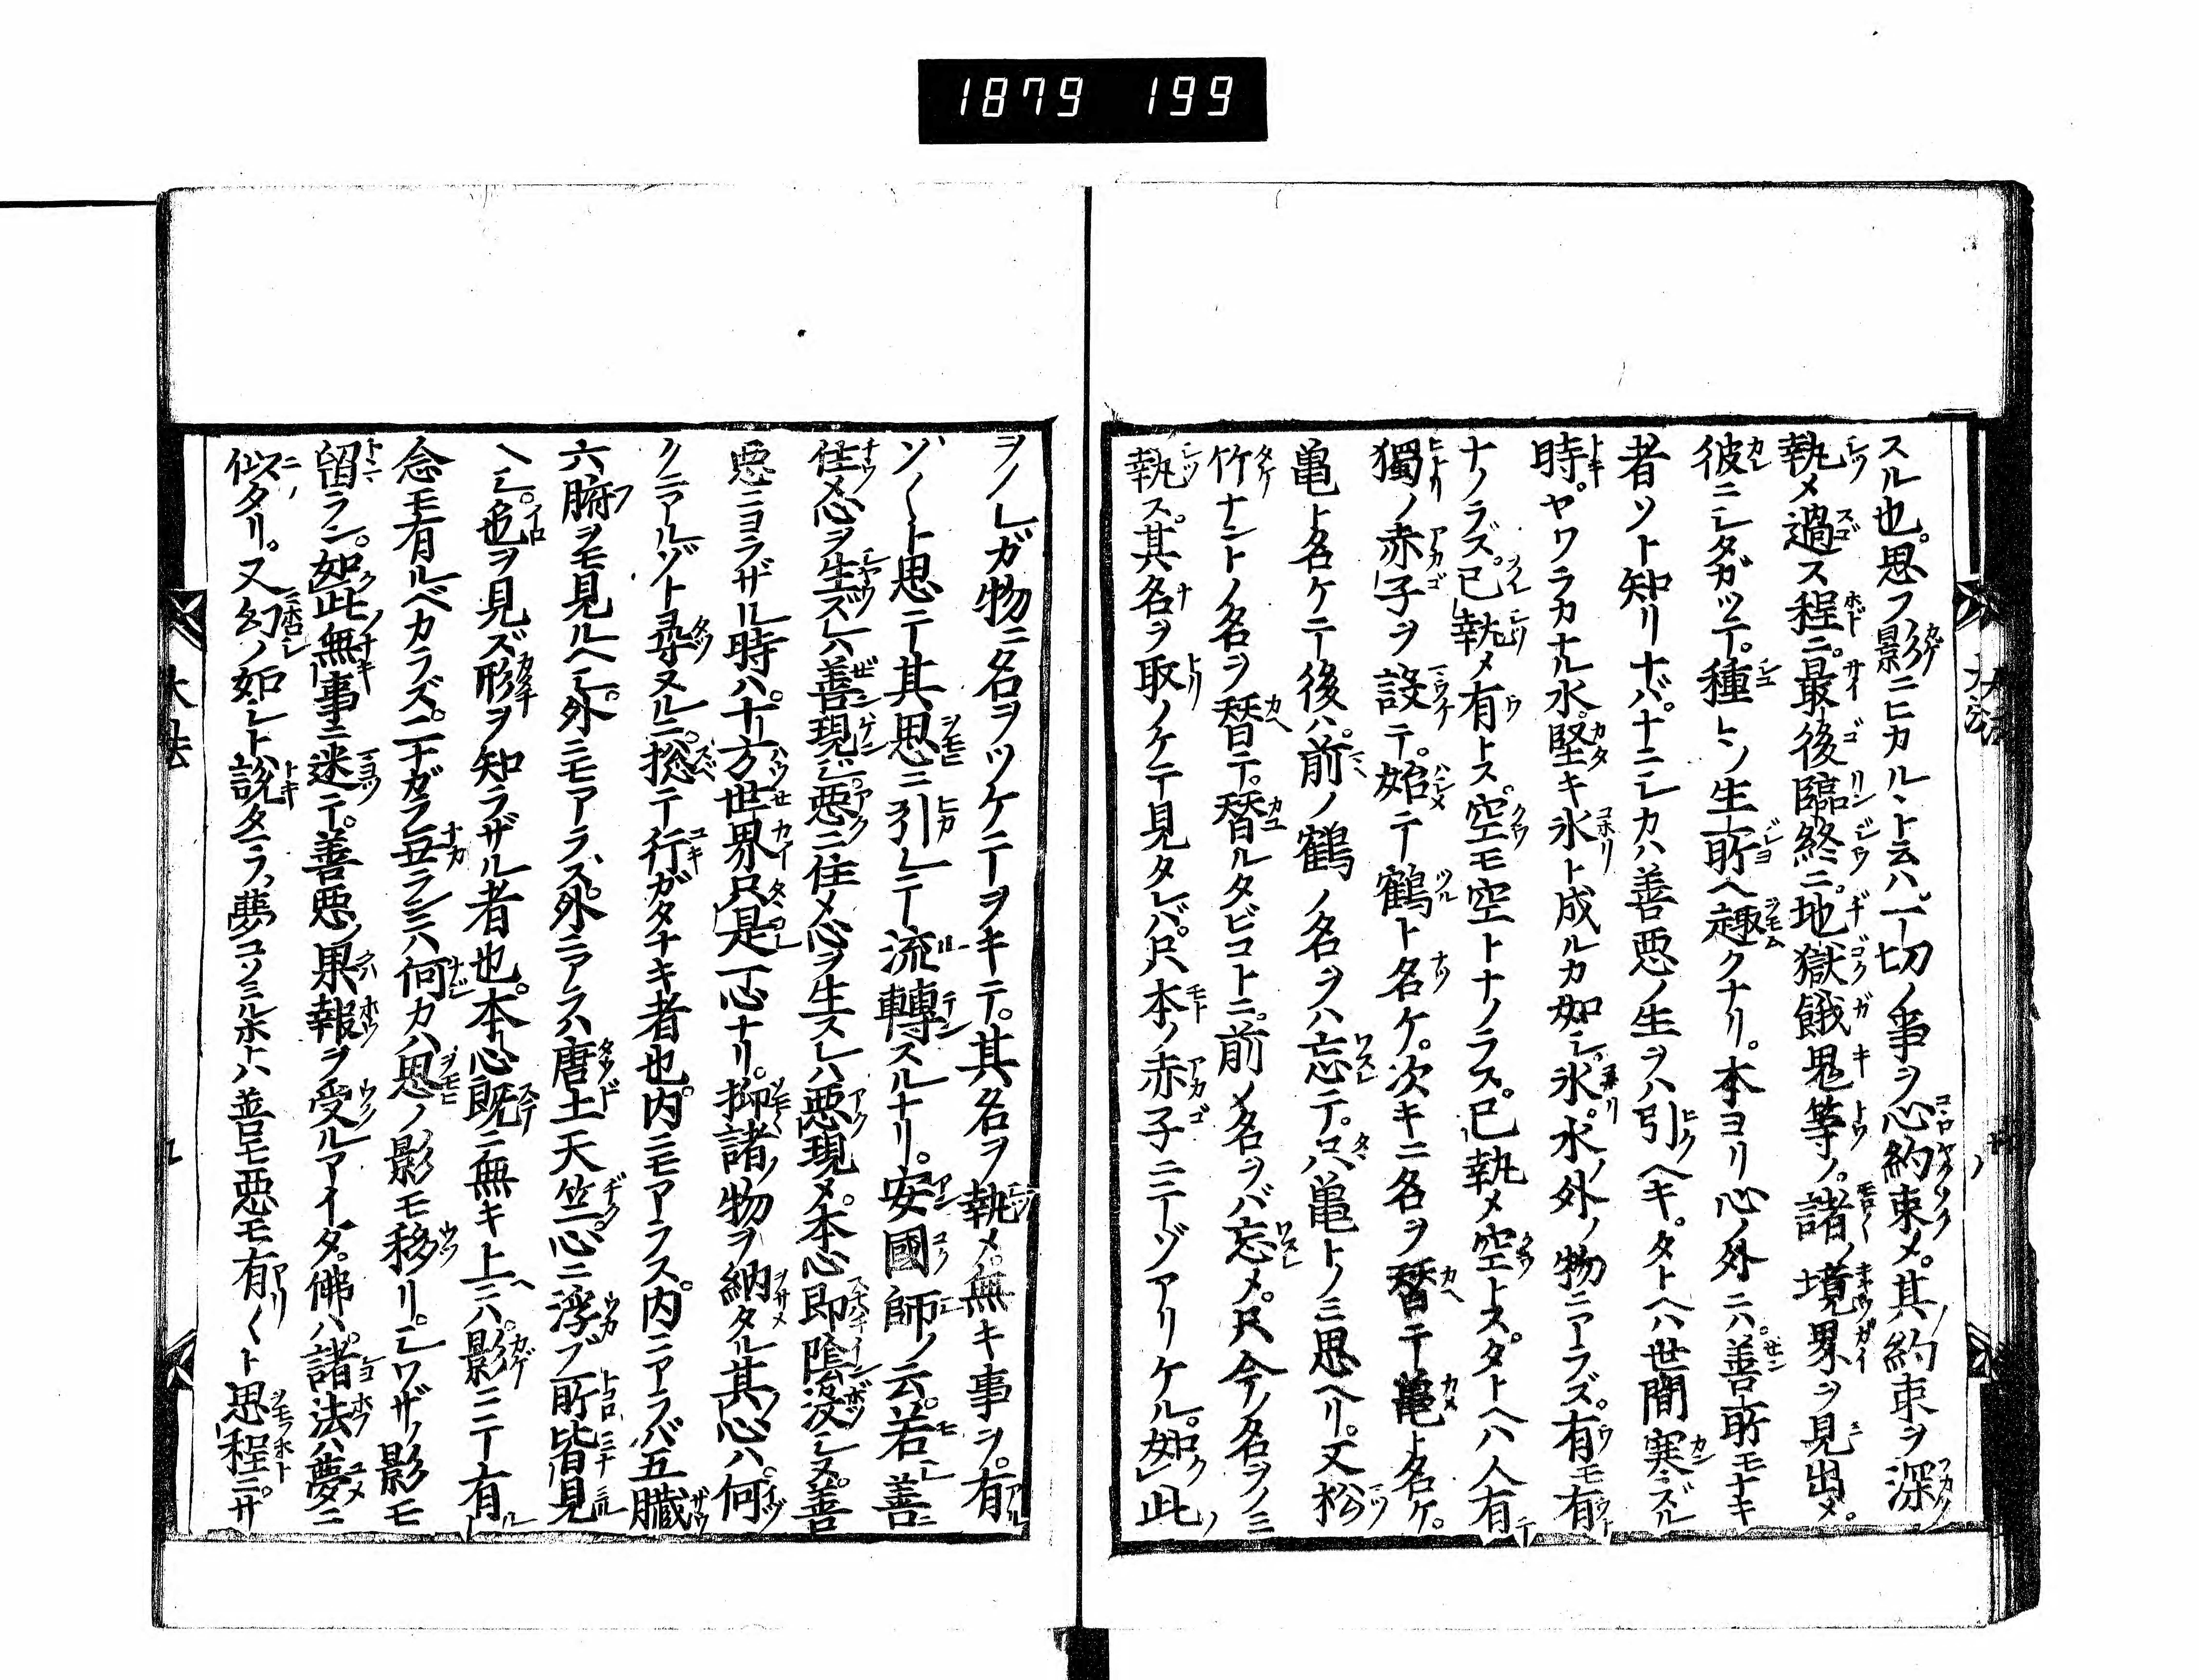 1879 199
スル也。思フ影ニヒカルヽト云ハ。一切ノ事ヲ心約束〆。其約束ヲ深ク
執〆過ス程ニ。最後臨終ニ。地獄餓鬼等ノ。諸ノ境界ヲ見出〆。
彼ニシタガツテ。種トン生所ヘ趣クナリ。本ヨリ心ノ外ニハ。善所モナキ
者ソト知リナバ。ナニシカハ善悪ノ生ヲハ引ヘキ。タトヘハ世間寒ズル
時。ヤワラカナル水。堅キ氷ト成ルカ如シ。氷。水ノ外ノ物ニアラズ。有モ有
ナノラズ。已執〆有トス。空モ空トナノラス。已執〆空トス。タトヘハ人有テ
獨ノ赤子ヲ設テ。始テ鶴ト名ケ。次キニ名ヲ替テ亀ト名ケ。
亀ト名ケテ後ハ。前ノ鶴ノ名ヲハ忘テ。只亀トノミ思ヘリ。又松
竹ナントノ名ヲ替テ。替ルタビコトニ。前〆名ヲバ忘〆。只今ノ名ヲノミ
執ス。其名ヲ取ノケテ見タレバ。只本ノ赤子ニテゾアリケル。如此ノ
ヲノレガ物ニ名ヲツケテヲキテ。其名ヲ執〆。無キ事ヲ。有
ソ〱ト思テ其思ニ引レテ流轉スルナリ。安國師ノ云。若シ善ニ
住〆心ヲ生ズレハ善現ジ。悪ニ住〆心ヲ生スレハ悪現〆。本心即陰没シヌ。善
悪ニヨラザル時ハ。十方世界只是一心ナリ。抑諸ノ物ヲ納タル其心ハ。何
クニアルゾト尋ヌルニ。捴テ行ガタナキ者也。内ニモアラス。内ニアラバ五臓
六腑ヲモ見ルヘシ。外ニモアラス。外ニアラハ唐土天竺。心ニ浮ブ所皆見
ヘシ。色ヲ見ズ形ヲ知ラザル者也。本心既ニ無キ上ニハ。影ニテ有ル
念モ有ルベカラズ。二ナガラ無ランニハ何カハ思ノ影モ移リ。シワザノ影モ
留ラン。如此無事ニ迷テ。善悪ノ果報ヲ受ルアイダ。佛ハ。諸法ハ夢ニ
似タリ。又幻ノ如シト説タマフ。夢コソミルホトハ善モ悪モ有〱ト思程ニサ